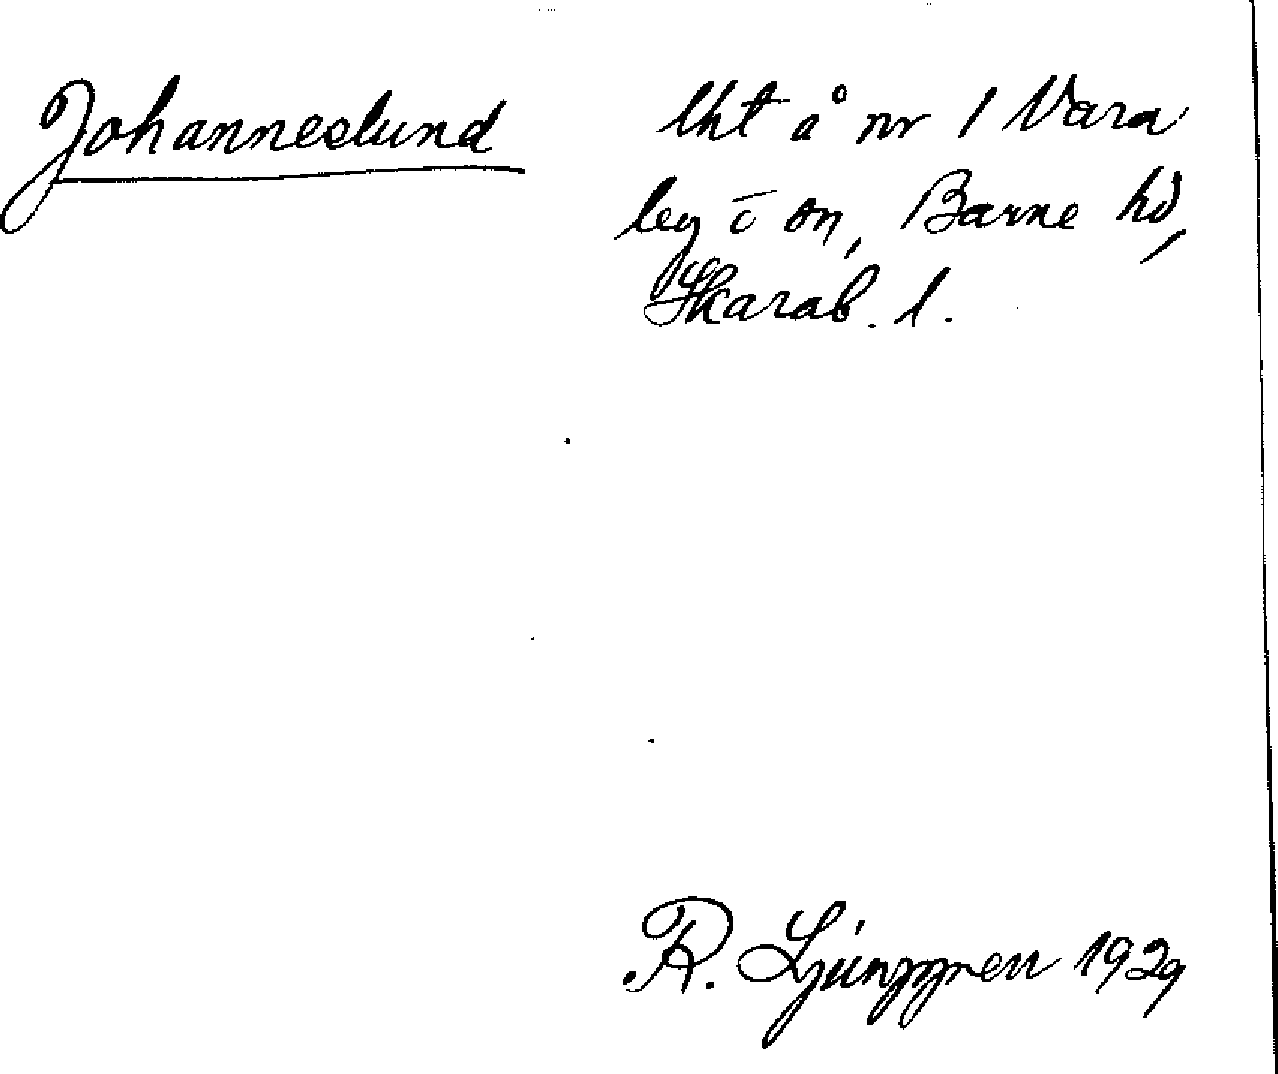 Johanneslund
lht å nr 1 Vara
leg i sn, Barne hd,
Skarab. l.
R. Ljunggren 1929